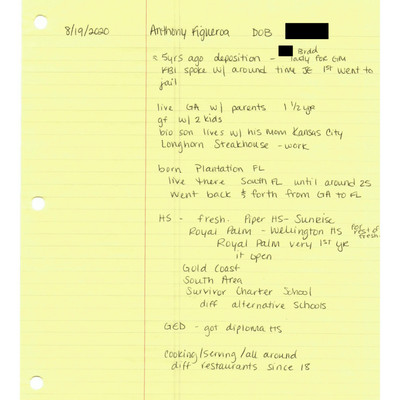 8/19/2020 Anthony Figueroa DOB
Brdd
~ 5yrs ago deposition - lady for GM
FBI spoke w/ around time JE 1st went to
jail
live GA w/ parents 1 1/2 yr
gf w/ 2 kids
bio son lives w/ his mom Kansas City
Longhorn Steakhouse - work
born Plantation FL
live there South FL until around 25
went back & forth from GA to FL
HS - fresh. Piper HS - Sunrise
Royal Palm - Wellington HS for rest of fresh
Royal Palm very 1st yr
it open
Gold Coast
South Area
Survivor Charter School
diff alternative schools
GED - got diploma HS
cooking/serving/all around
diff restaurants since 18